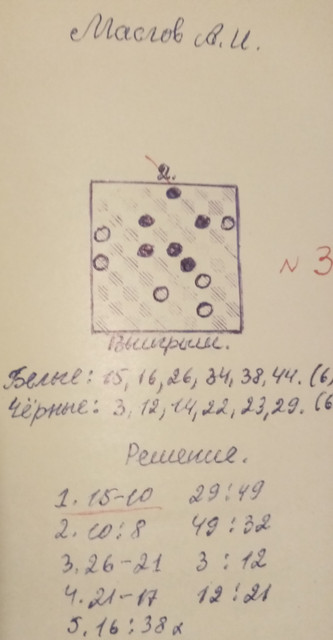 Маслов А.И.
2.
N 3
Выигрыш.
Белые: 15, 16, 26, 34, 38, 44. (6)
Чёрные: 3, 12, 14, 22, 23, 29. (6
Решение.
1. 15-10 29:49
2. 10:8 49:32
3. 26-21 3:12
4. 21-17 12:21
5. 16:38x